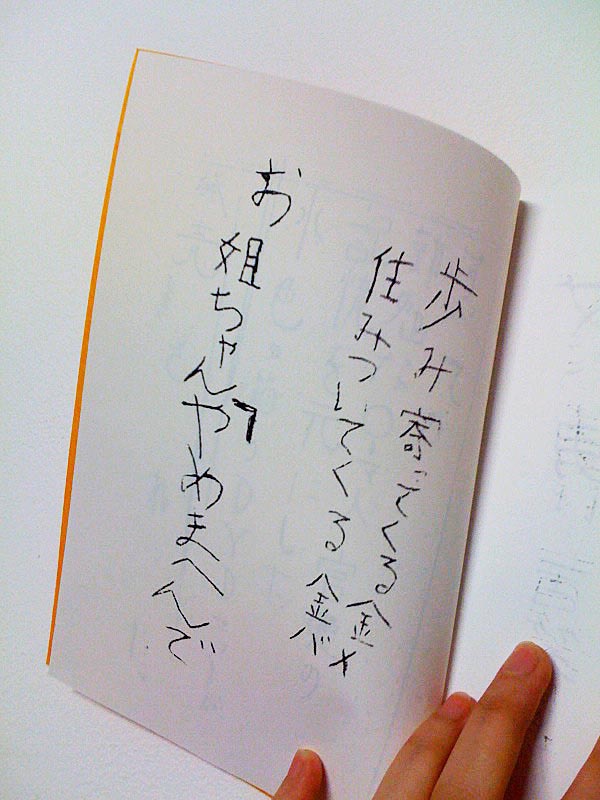 歩み寄ってくる金メ
住みついてくる金
お姐ちゃん「やめまへんで